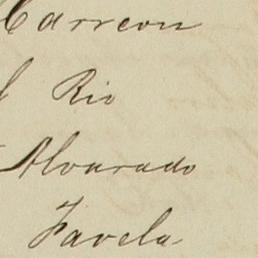 Carreon
Rio
Alvarado
Favela